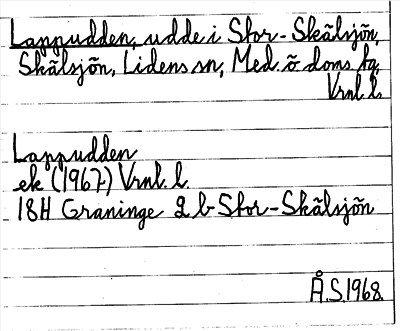 Lappudden, udde i Stor-Skälsjön,
Skälsjön, Lidens sn, Med. ö doms. tg,
Vrnl. l.
Lappudden
ek (1967) Vrnl. l.
18H Graninge 2 b Stor-Skälsjön
Å.S. 1968.